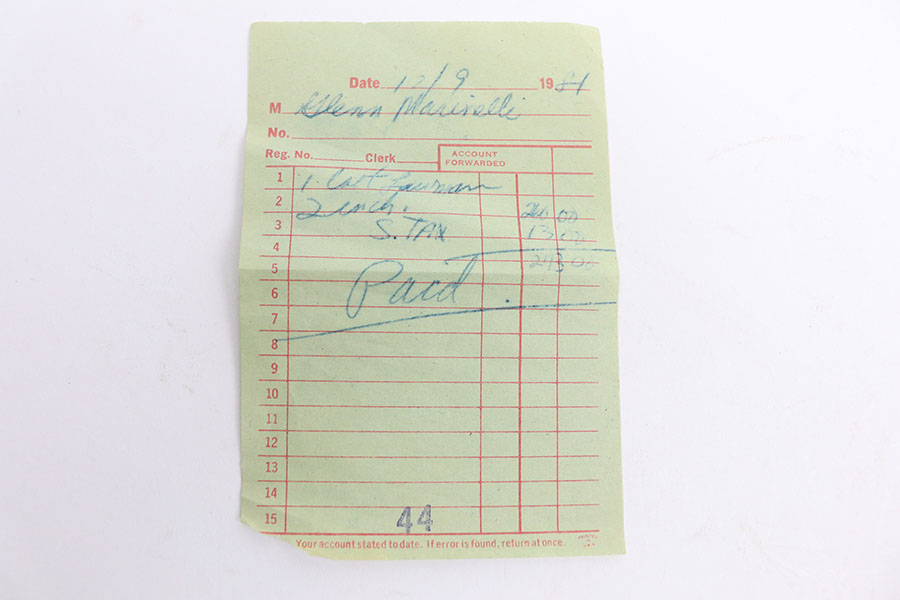 Date 12/9 1981
M Glenn Marinelli
No.
Reg. No. Clerk ACCOUNT FORWARDED
1 1. Colt Lawman
2 2 inch. 260 00
3 S. TAX 13 00
4 00
5 Paid
6
7
8
9
10
11
12
13
14
15 44
Your account stated to date. If error is found, return at once.